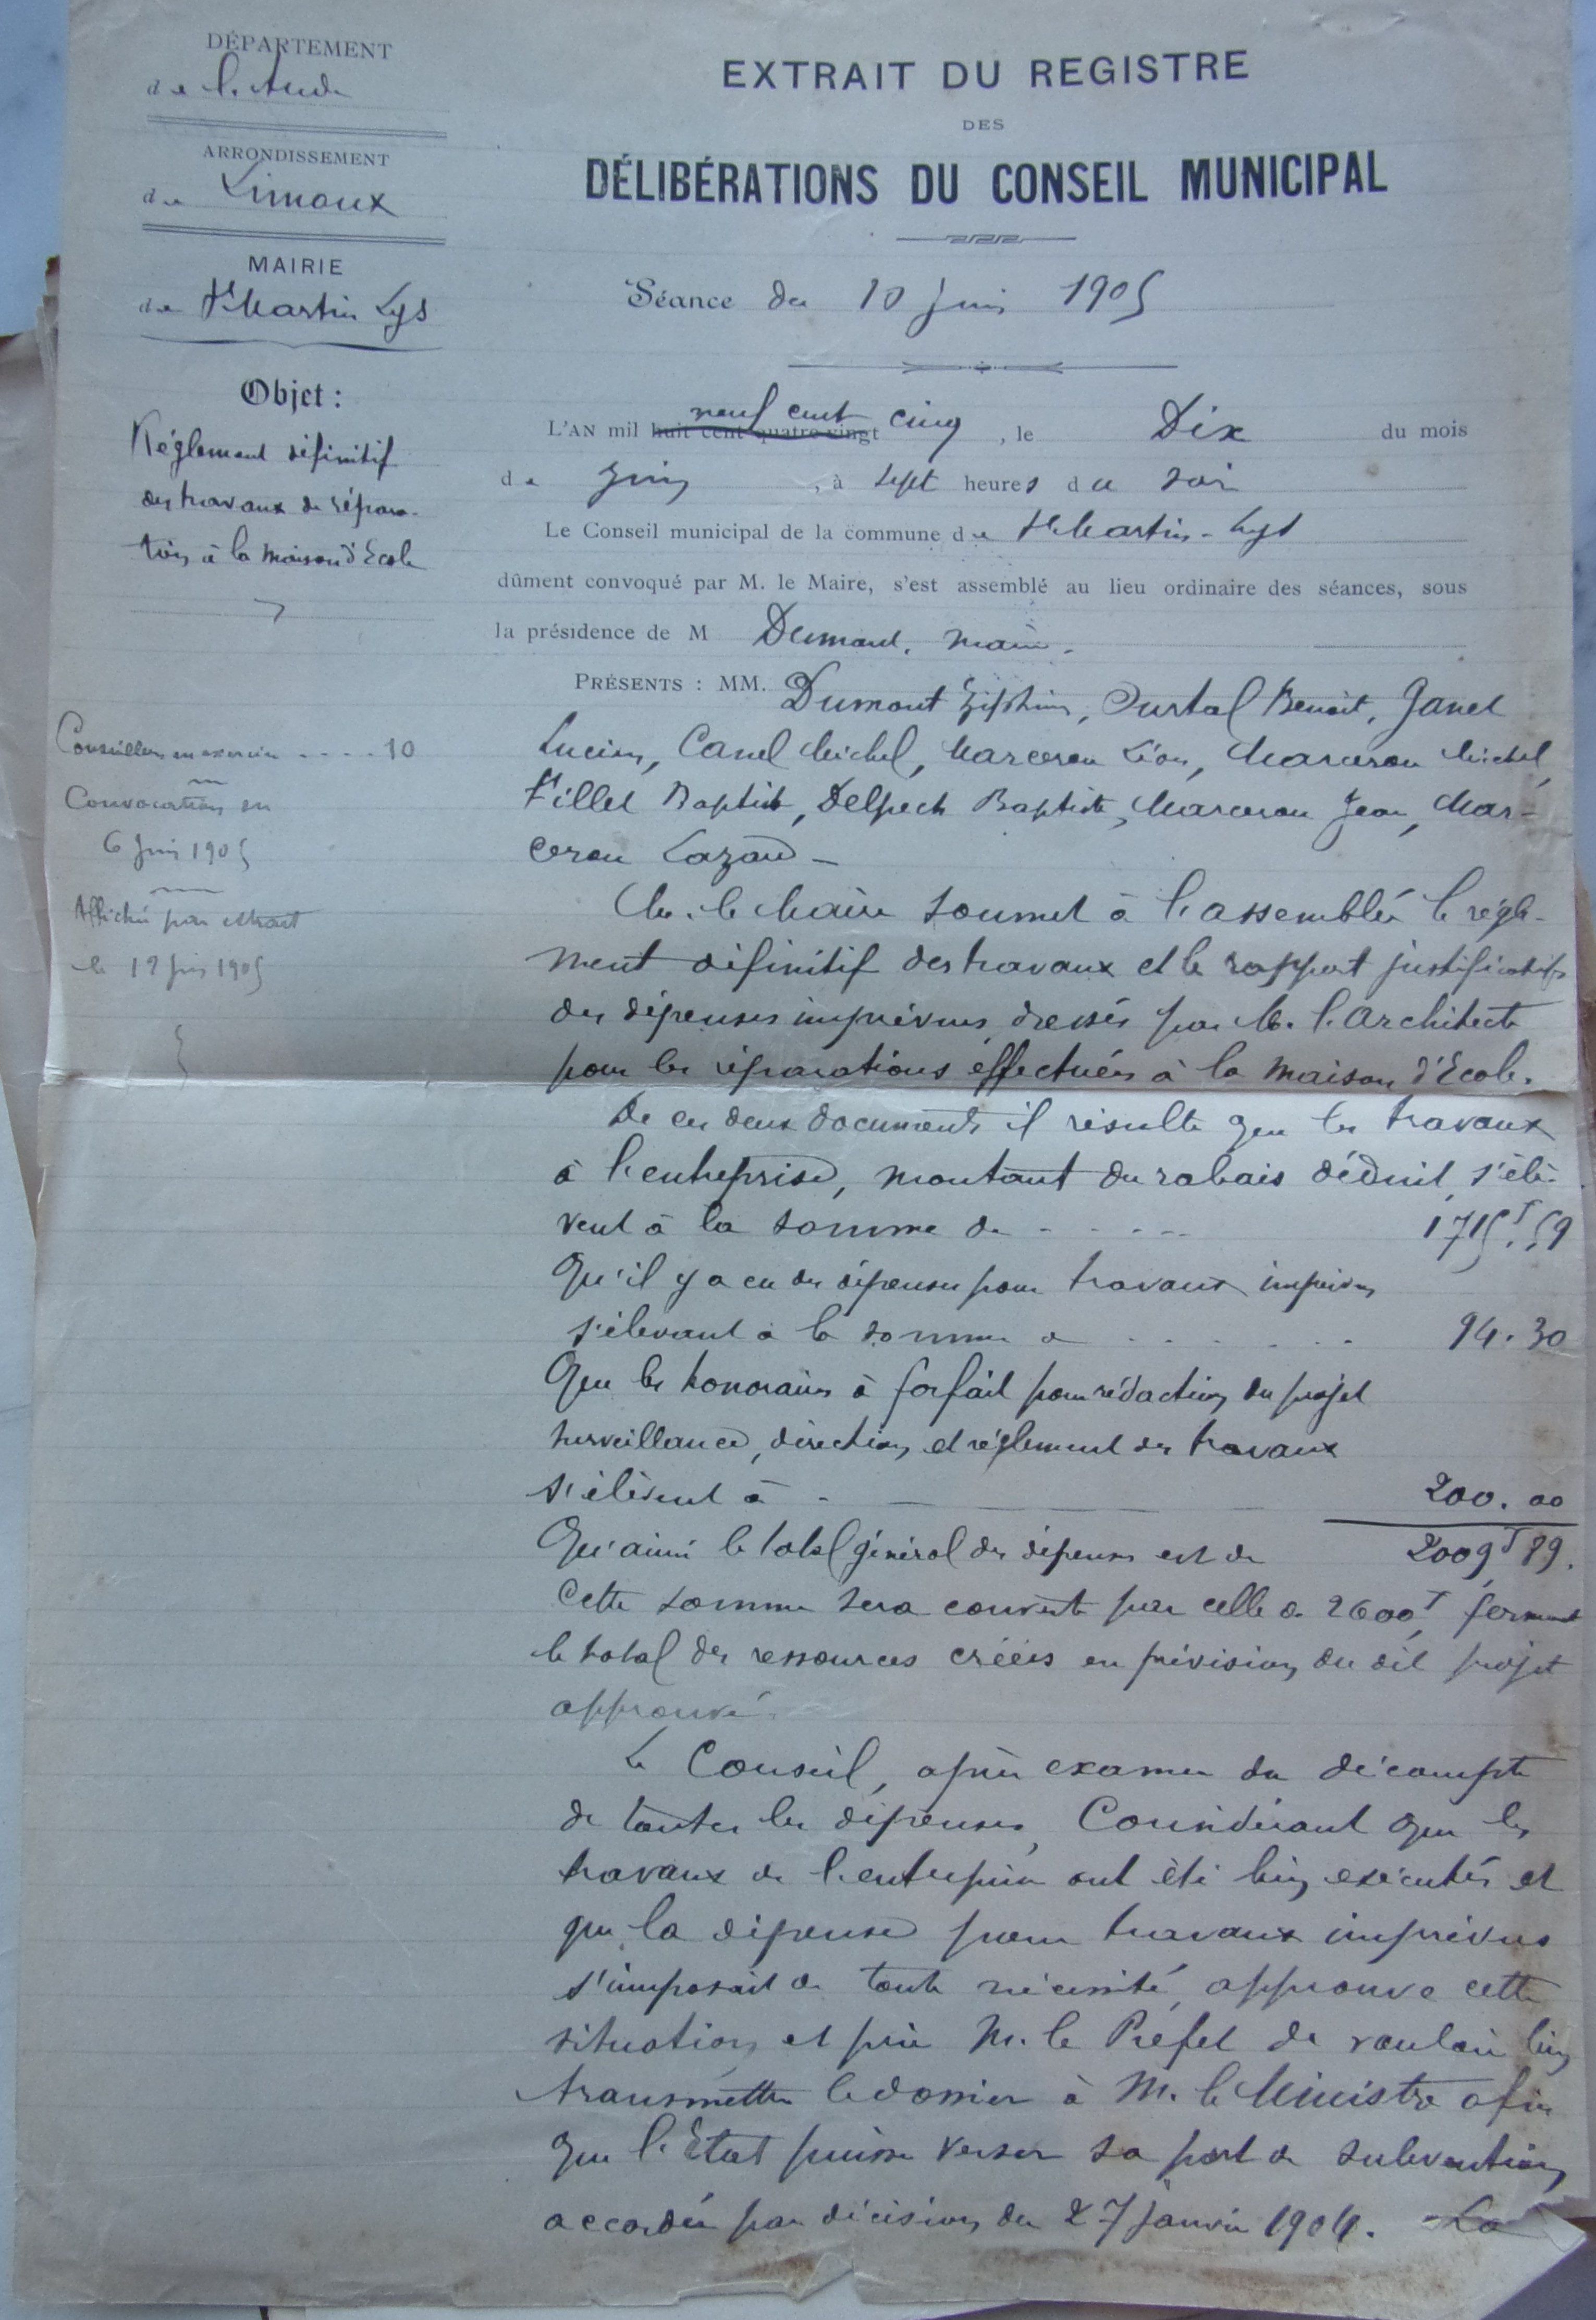 DÉPARTEMENT
de l'Aude
ARRONDISSEMENT
de Limoux
MAIRIE
de St Martin Lys
Objet :
Réglement définitif
des travaux de répara-
tion à la Maison d'Ecole
Conseillers en exercice . . . . 10
Convocation du
6 Juin 1905
Affiché par extrait
le 12 Juin 1905
EXTRAIT DU REGISTRE
DES
DÉLIBÉRATIONS DU CONSEIL MUNICIPAL
Séance du 10 Juin 1905
neuf cent
L'AN mil huit cent quatre-vingt cinq , le Dix du mois
de Juin , à sept heures du soir
Le Conseil municipal de la commune de St Martin-Lys
dûment convoqué par M. le Maire, s'est assemblé au lieu ordinaire des séances, sous
la présidence de M Dumont, Maire.
PRÉSENTS : MM. Dumont Ziphirin, Ourtal Benoit, Canel
Lucien, Canel Michel, Marceron Léon, Marceron Michel,
Tillet Baptiste, Delpech Baptiste, Marceron Jean, Mar-
ceron Lazare -
M. le Maire soumet à l'assemblée le régle-
ment définitif des travaux et le rapport justificatif
des dépenses imprévues dressés par M. l'Architecte
pour les réparations effectuées à la Maison d'Ecole.
De ces deux documents il résulte que les travaux
à l'entreprise, montant du rabais déduit, s'élè-
vent à la somme de - - - - - 1715f.59
Qu'il y a eu des dépenses pour travaux imprévus
s'élevant à la somme de . . . . . . 94.30
Que les honoraires à forfait pour rédaction du projet
surveillance, direction et réglement des travaux
s'élèvent à - 200.00
Qu'ainsi le total général des dépenses est de 2009f89.
Cette somme sera couverte par celle de 2600f, formant
le total des ressources créées en prévision du dit projet
approuvé.
Le Conseil, après examen du décompte
de toutes les dépenses, Considérant que les
travaux de l'entreprise ont été bien exécutés et
que la dépense pour travaux imprévus
s'imposait de toute nécessité, approuve cette
situation et prie M. le Préfet de vouloir bien
transmettre le dossier à M. le Ministre afin
que l'Etat puisse verser sa part de subvention
accordée par décision du 27 Janvier 1904. La